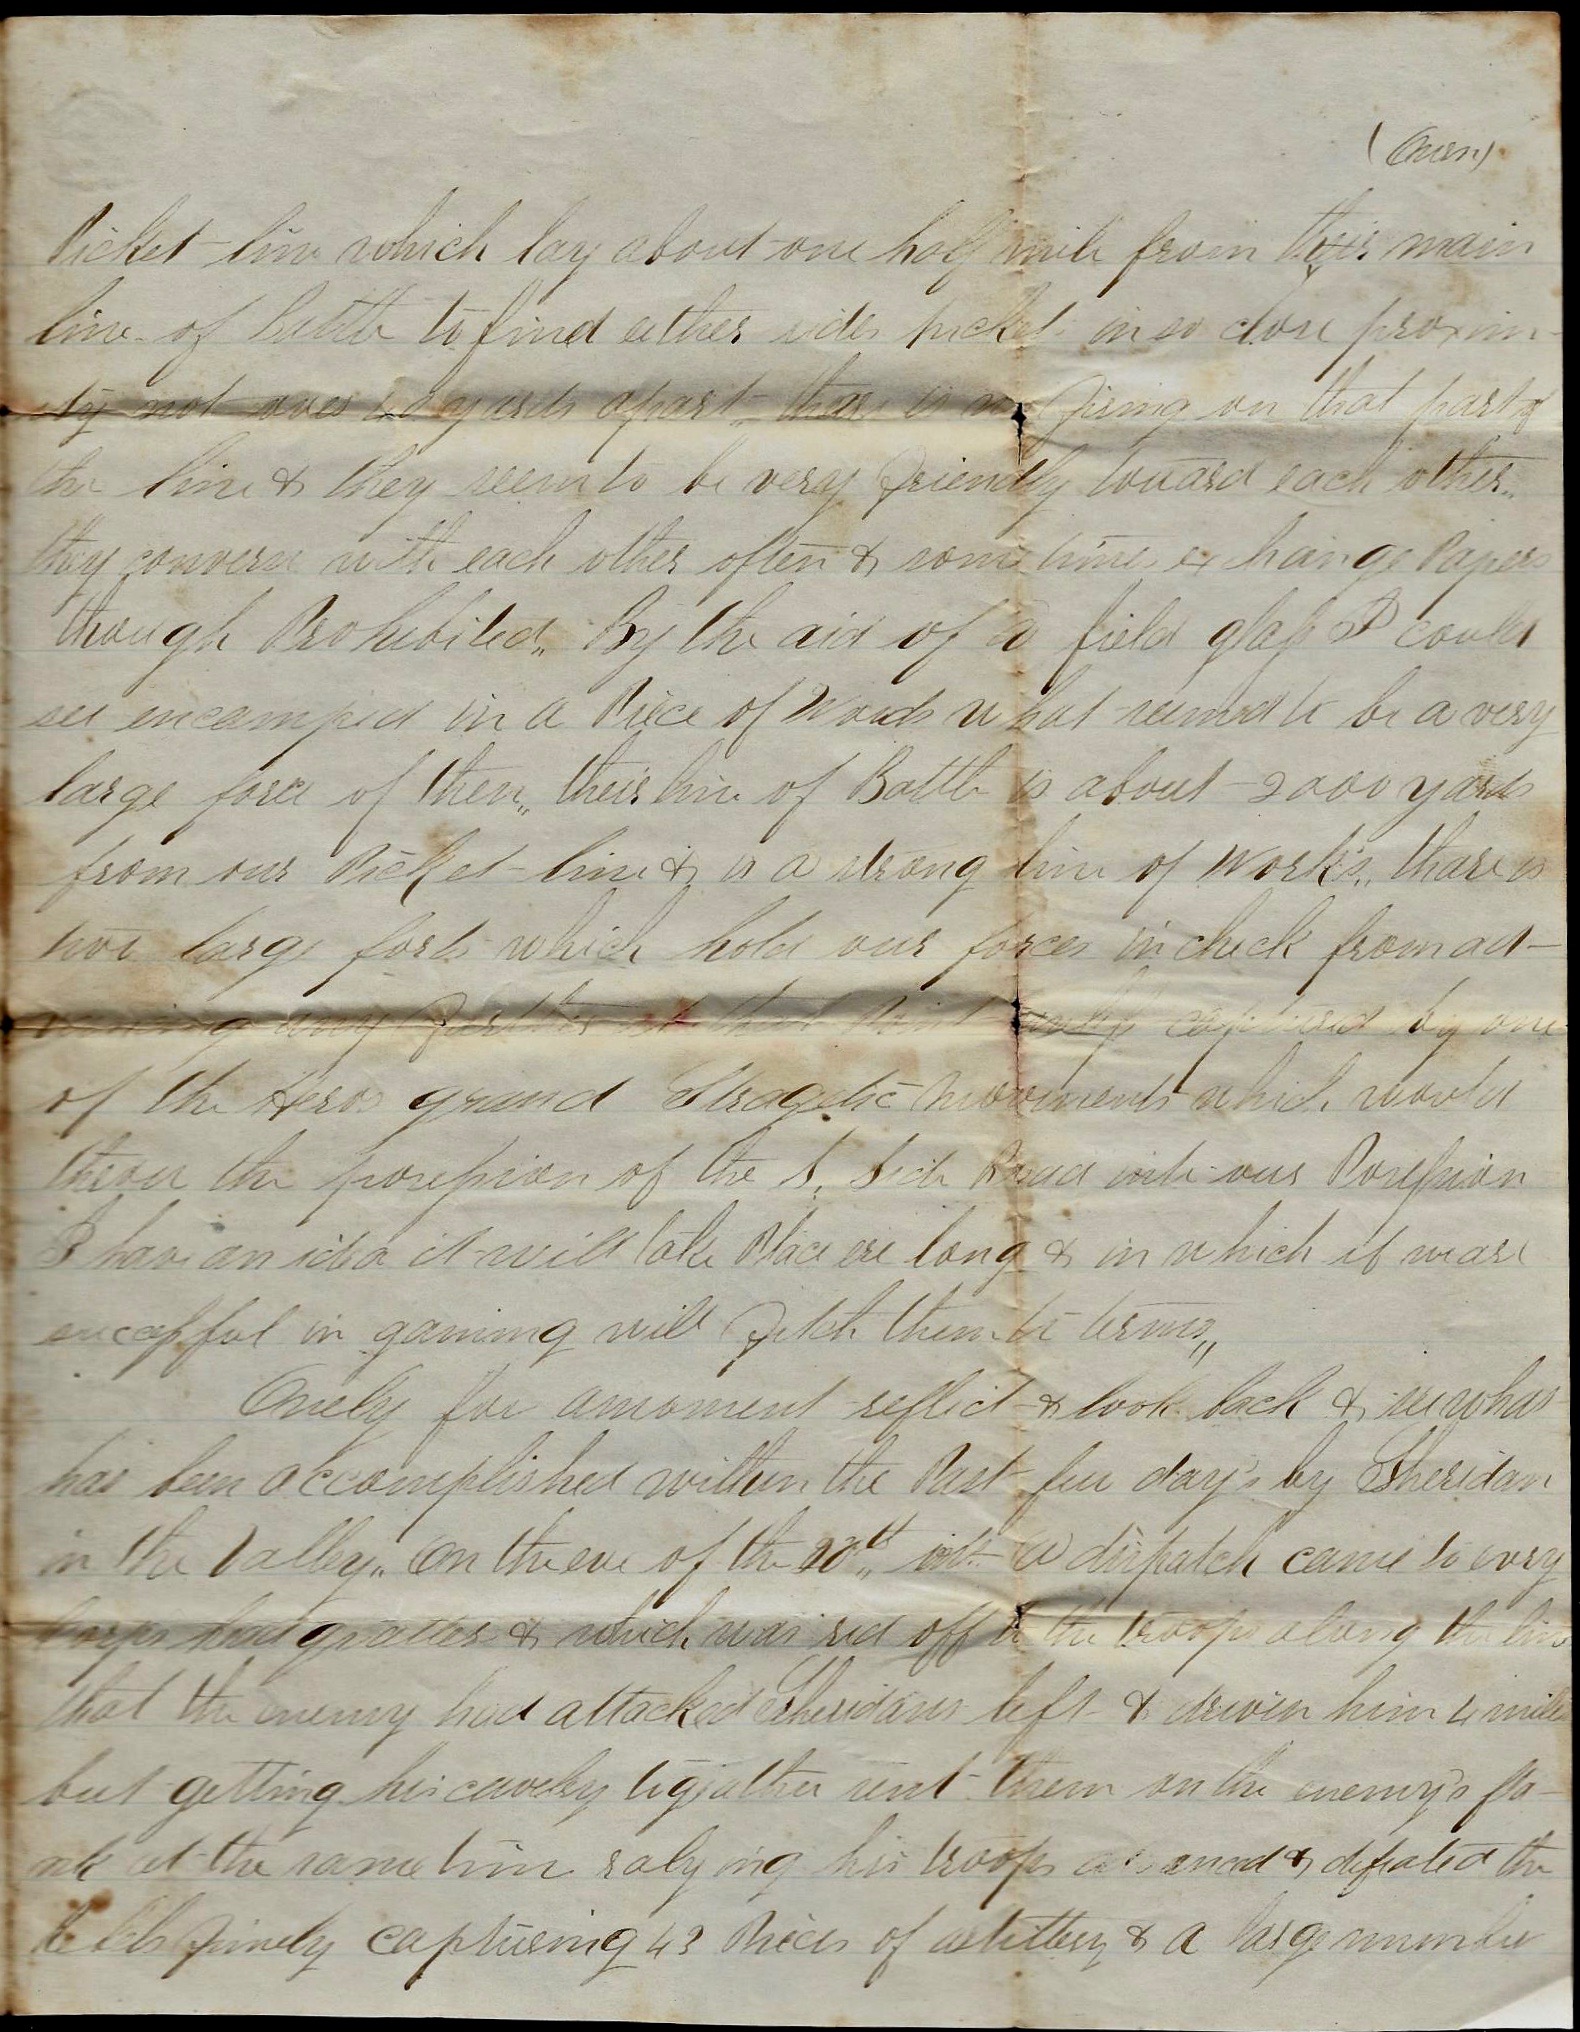 (Over)
Picket line which lay about one half mile from their main
line of battle to find either sides picket in so close proxim-
ity not over yards apart thare is no firing on that part of
the line & they seem to be very friendly toward each other,,
they converse with each other often & some times exchange Papers
though Prohibited,, By the aid of a field glass I could
see encamped in a Piece of Woods what seemed to be a very
large force of them,, their line of Battle is about 2000 yards
from our Picket line & is a strong line of Work's,, thare is
two large forts which hold our forces in check from ad-
any further at that Point captured by one
of the Heros grand Stragetic movements which would
throu the possession of the S. Side Road into our Possession
I have an idea it will take Place ere long & in which if we are
sucessful in gaining will fetch them to terms,,
Onely for a moment reflect & look back & see what
has been accomplished within the Past few day's by Sheridan
in the Valley,, On the eve of the 20th,, inst a dispatch came to evry
Corps head & which was red off to the troops along the line
that the enemy had attacked Sheridans left & driven him 4 miles
but getting his cavelry togather sent them on the enemy's fla-
nk at the same time ralying his troops & defeated the
Rebls finely capturing 43 Pieces of & a large number